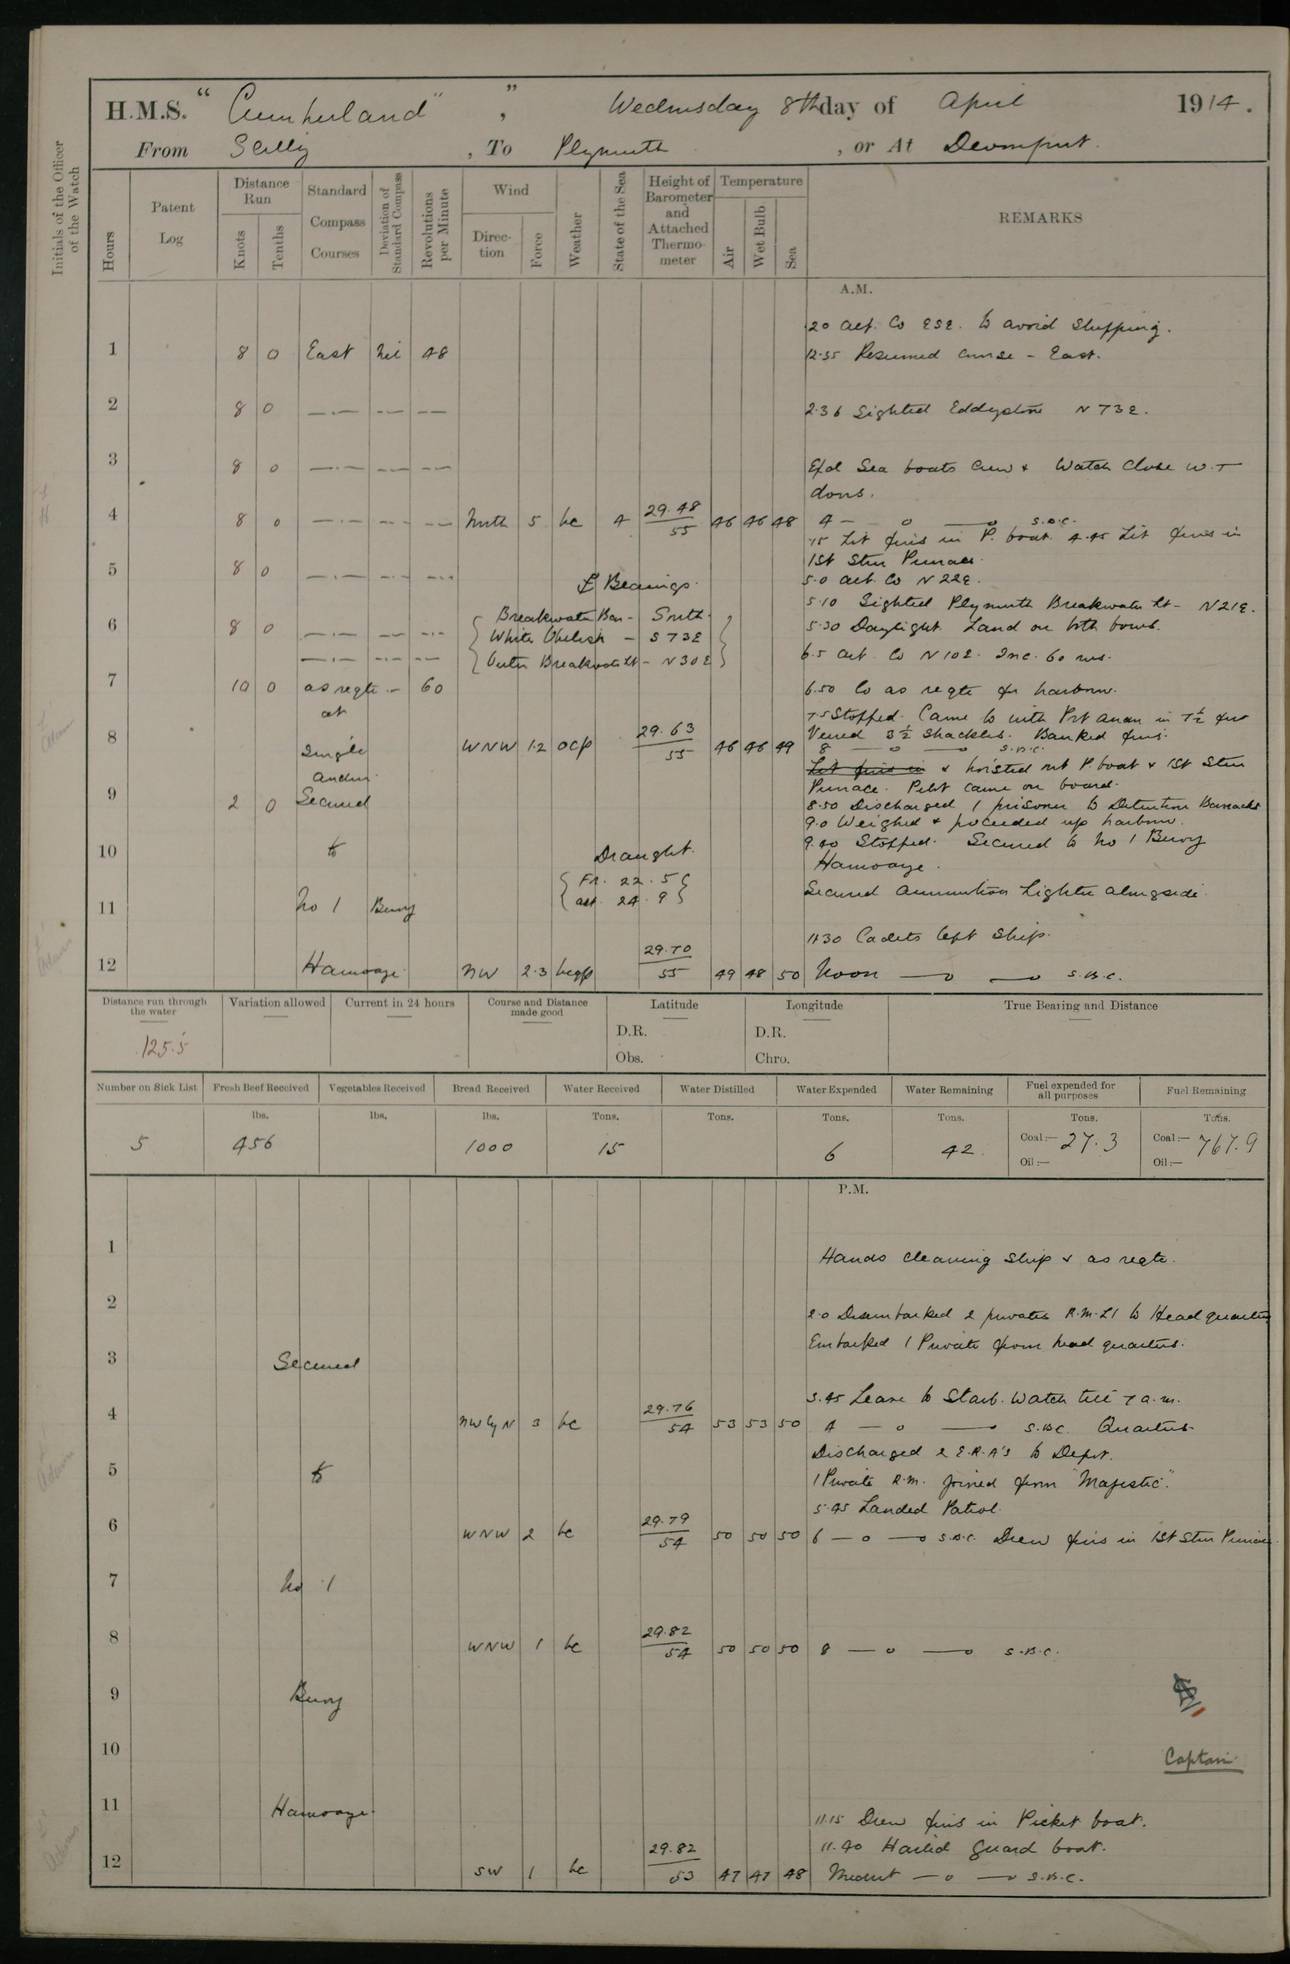 H.M.S. "Cumberland", Wednesday 8th day of April 1914.
From Scilly, To Plymouth, or At Devonport.
Initials of the Officer of the Watch
Hours
Patent Log
Distance Run
Knots
Tenths
Standard Compass Courses
Deviation of Standard Compass
Revolutions per Minute
Wind
Direction
Force
Weather
State of the Sea
Height of Barometer and Attached Thermometer
Temperature
Air
Wet Bulb
Sea
REMARKS
A.M.
.20 alt. Co ESE. to avoid shipping.
1 8 0 East Nil 48 12.35 Resumed course - East.
2 8 0 —.— —— —— 2.36 Sighted Eddystone N73E.
3 8 0 —.— —— —— Exd Sea boats crew & Watch close W.T
doors.
4 8 0 —.— —— —— North 5 bc 4 29.48/55 46 46 48 4 — o —o S.B.C.
.15 Lit fires in P. boat. 4.45 Lit fires in
1st Stm Pinnace.
5 8 0 —.— —— —— Bearings. 5.0 alt. Co N22E.
5.10 Sighted Plymouth Breakwater Lt - N21E.
Breakwater Bn - South.
6 8 0 —.— —— —— White Obelisk - S73E 5.30 Daylight Land on both bows.
—.— —— —— Outer Breakwater Lt - N30E 6.5 alt Co N10E. Inc. 60 revs.
7 10 0 as reqte - 60 6.50 Co as reqte for harbour.
at
7.5 Stopped. Came to with Port anchor in 7½ fms
Veered 3½ shackles. Banked fires.
8 Single WNW 1.2 ocp 29.63/55 46 46 49 8 — o —o S.B.C.
anchor.
Lit fires in & hoisted out P boat & 1st Stm
Pinnace. Pilot came on board.
9 2 0 Secured 8.50 Discharged 1 prisoner to Detention Barracks
9.0 Weighed & proceeded up harbour.
10 to Draught. 9.40 Stopped. Secured to No 1 Buoy
Hamoaze.
Fd. 22.5
11 No 1 Buoy aft. 24.9 Secured ammunition Lighter alongside.
11.30 Cadets left Ship.
12 Hamoaze NW 2.3 bcqp 29.70/55 49 48 50 Noon —o —o S.B.C.
Distance run through the water
Variation allowed
Current in 24 hours
Course and Distance made good
Latitude
Longitude
True Bearing and Distance
125.5
D.R. D.R.
Obs. Chro.
Number on Sick List
Fresh Beef Received
Vegetables Received
Bread Received
Water Received
Water Distilled
Water Expended
Water Remaining
Fuel expended for all purposes
Fuel Remaining
lbs. lbs. lbs. Tons. Tons. Tons. Tons. Tons. Tons.
5 456 1000 15 6 42 Coal:— 27.3 Coal:— 767.9
Oil:— Oil:—
P.M.
1 Hands cleaning ship & as reqte.
2 2.0 Disembarked 2 privates R.M.L.I to Headquarters
Embarked 1 Private from head quarters.
3 Secured
3.45 Leave to Starb. Watch till 7 a.m.
4 NWbyN 3 bc 29.76/54 53 53 50 4 — o —o S.B.C. Quarters.
Discharged 2 E.R.A's to Depot.
5 to 1 Private R.M. joined from "Majestic".
5.45 Landed Patrol
6 WNW 2 bc 29.79/54 50 50 50 6 — o —o S.B.C. Drew fires in 1st Stm Pinnace.
7 No 1
8 WNW 1 bc 29.82/54 50 50 50 8 — o —o S.B.C.
9 Buoy
10 Captain
11 Hamoaze. 11.15 Drew fires in Picket boat.
11.40 Hailed guard boat.
12 SW 1 bc 29.82/53 47 47 48 Midnt —o —o S.B.C.